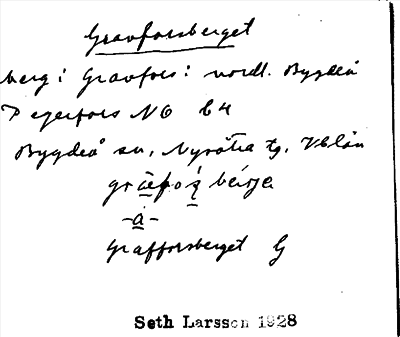 Gravforsberget
berg i Gravfors i nordl. Bygdeå
Degerfors NO b4
Bygdeå sn, Nysätra tg. Vblän
-å-
Grafforsberget G
Seth Larsson 1928